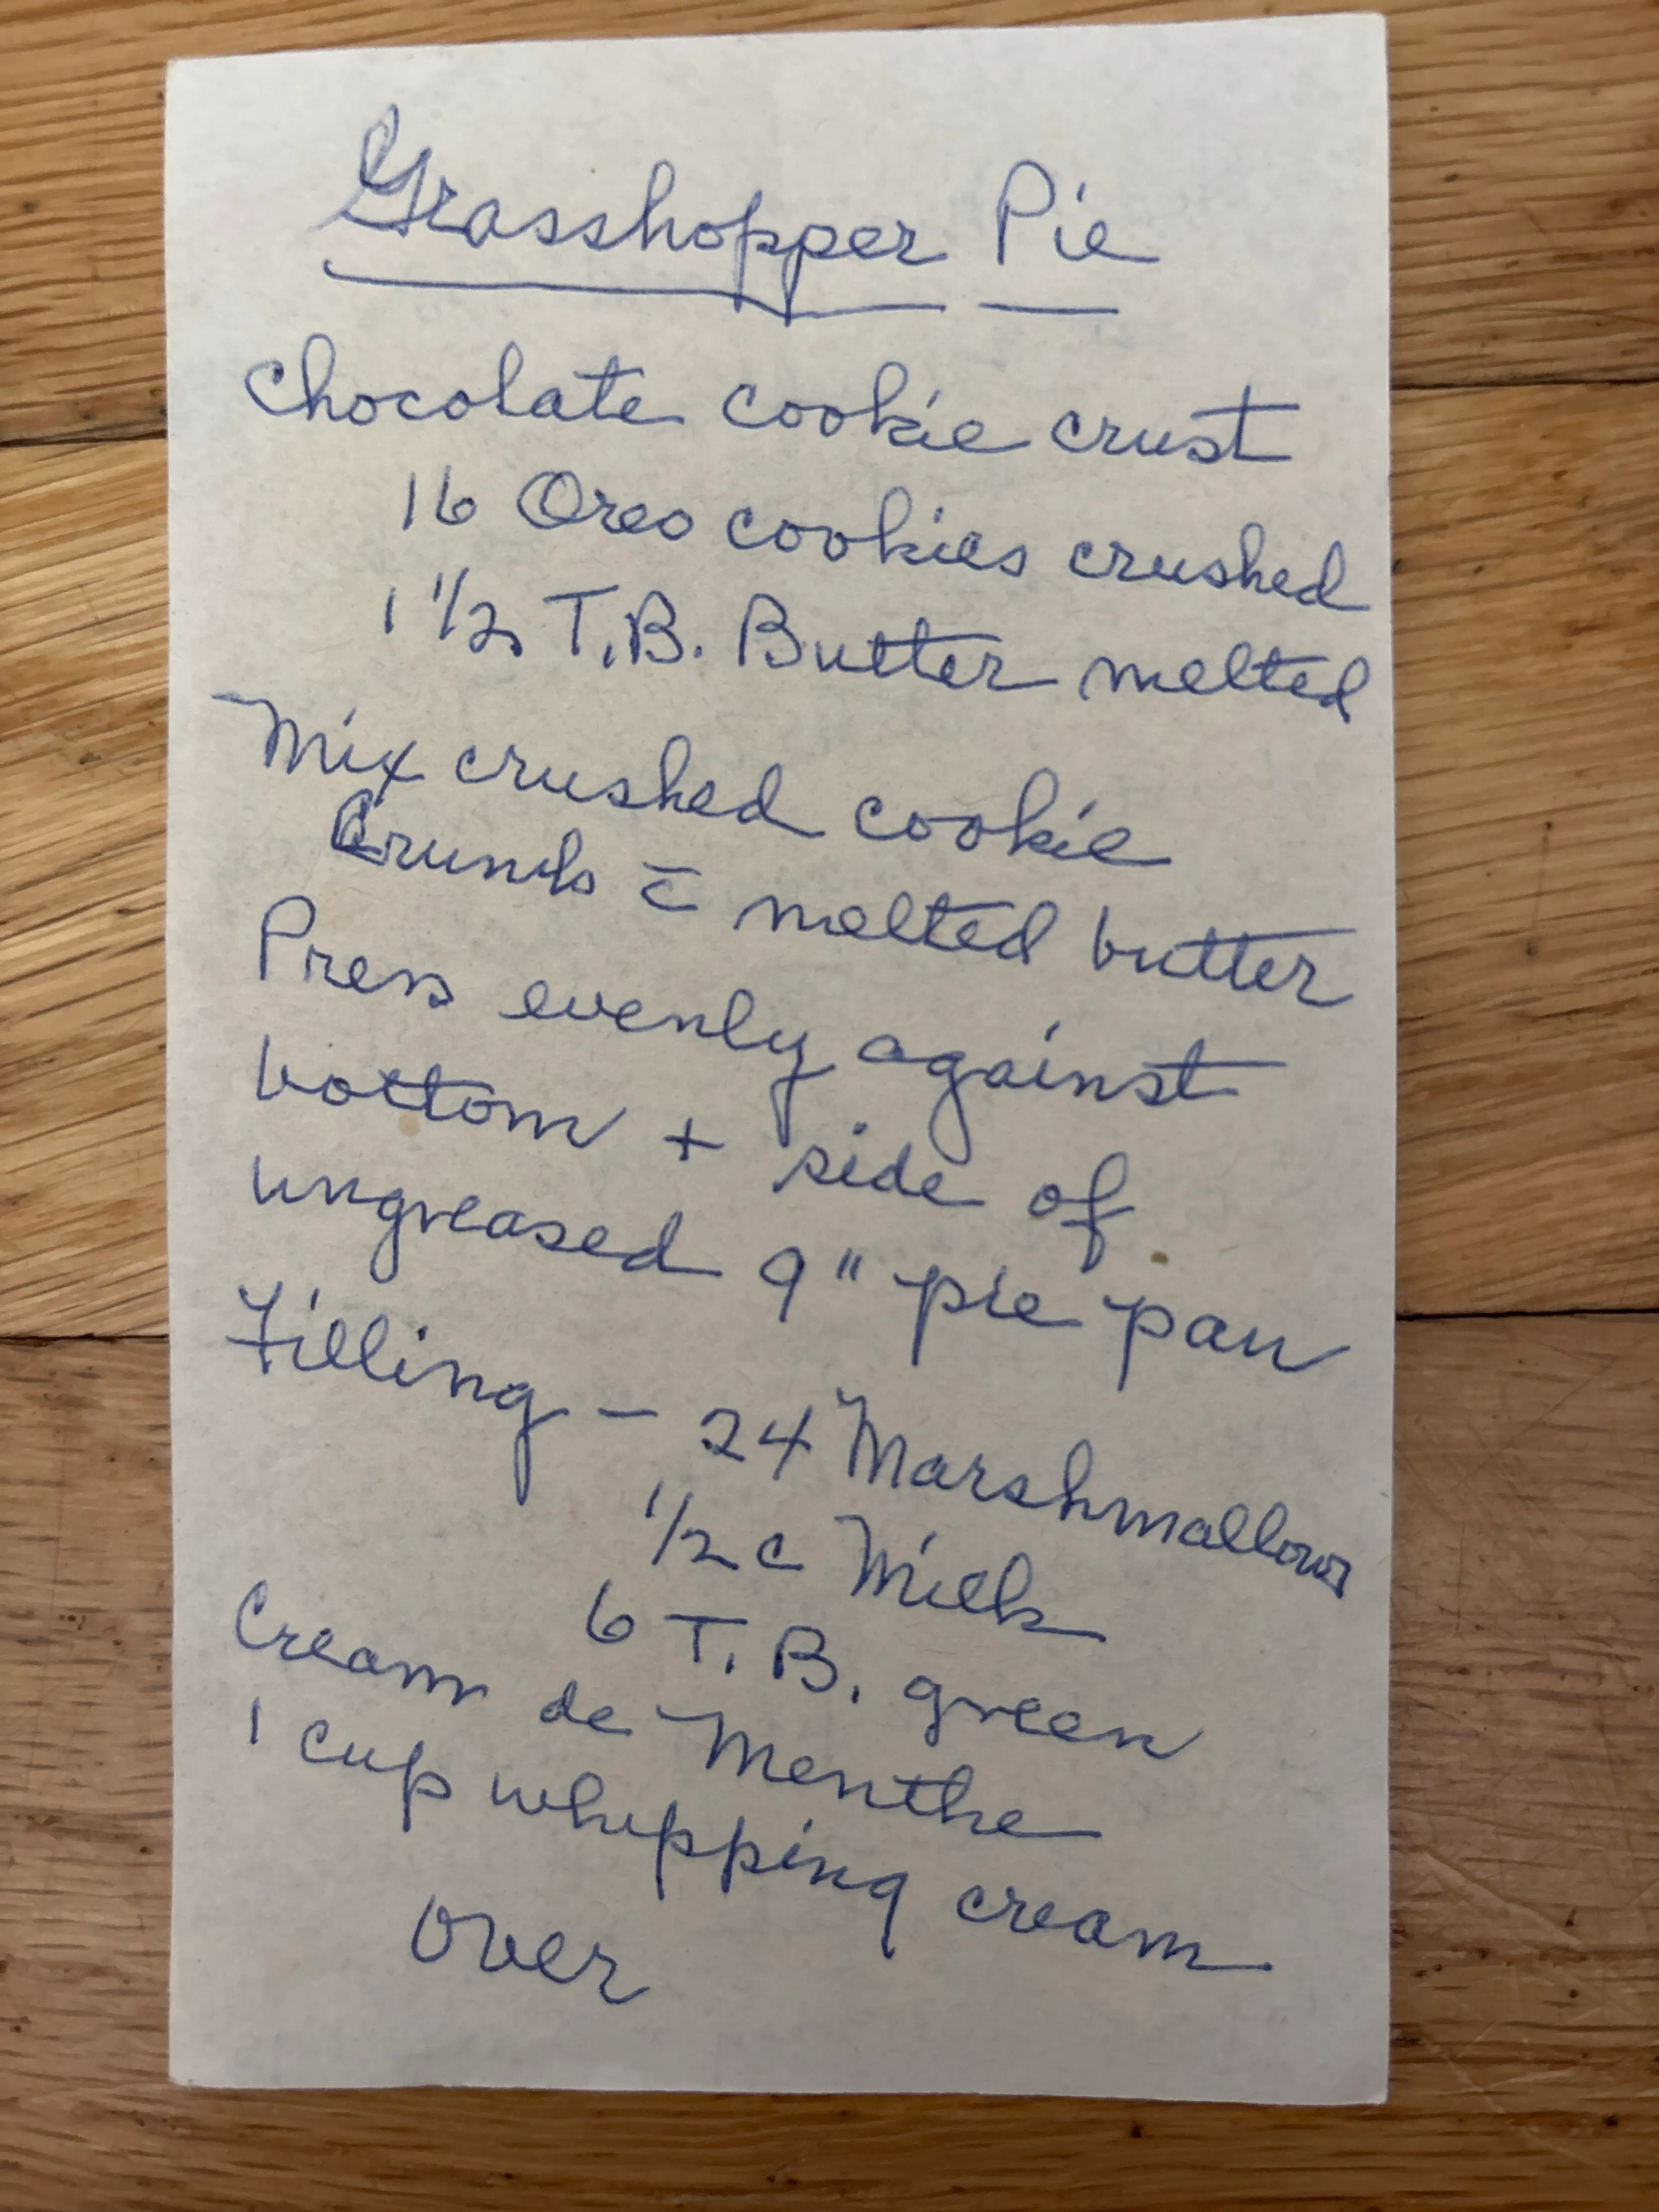 Grasshopper Pie
Chocolate cookie crust
16 Oreo cookies crushed
1 1/2 T.B. Butter melted
Mix crushed cookie
Crumbs c̄ melted butter
Press evenly against
bottom + side of
ungreased 9" pie pan
Filling – 24 Marshmallows
1/2 c Milk
6 T.B. green
Cream de Menthe
1 cup whipping cream
Over